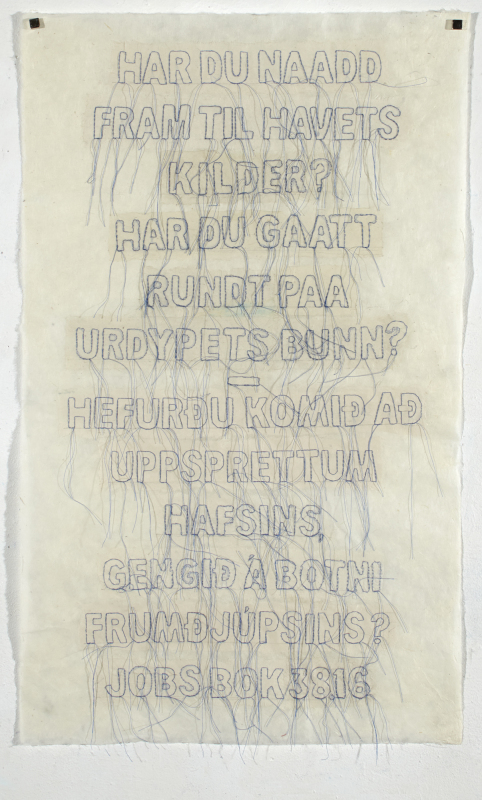 HAR DU NAADD
FRAM TIL HAVETS
KILDER?
HAR DU GAATT
RUNDT PAA
URDYPETS BUNN?
—
HEFURÐU KOMIÐ AÐ
UPPSPRETTUM
HAFSINS,
GENGIÐ Á BOTNI
FRUMÐJÚPSINS?
JOBS BOK 38.16